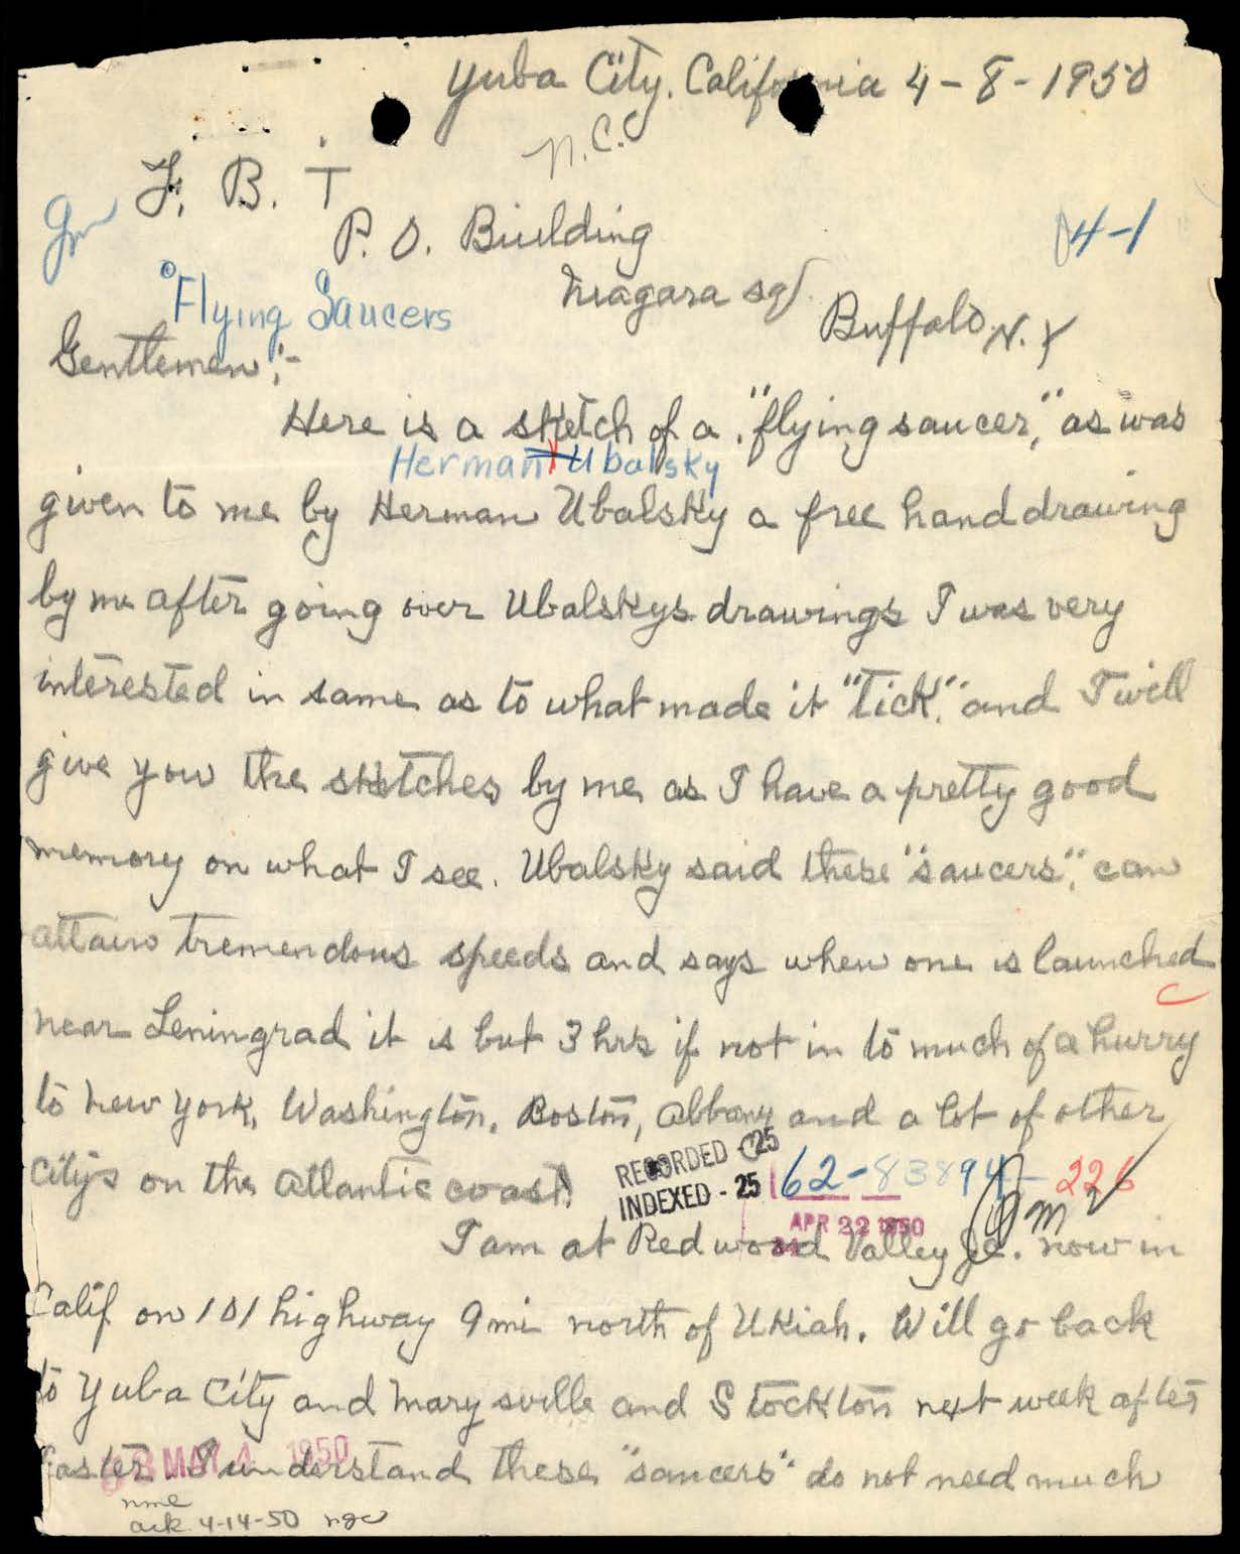 Yuba City. California 4-8-1950
n.C.
F. B. I
P. O. Building
4-1
Niagara sq.
"Flying Saucers
Buffalo N. Y
Gentlemen:-
Here is a sketch of a, "flying saucer," as was
Herman Ubalsky
given to me by Herman Ubalsky a free hand drawing
by me after going over Ubalskys drawings I was very
interested in same as to what made it "tick." and I will
give you the sketches by me as I have a pretty good
memory on what I see. Ubalsky said these "saucers", can
attain tremendous speeds and says when one is launched
near Leningrad it is but 3 hrs if not in to much of a hurry
to New York, Washington, Boston, Albany and a lot of other
City's on the Atlantic coast.
RECORDED - 25
INDEXED - 25
62-83894-226
APR 22 1950
I am at Redwood Valley now in
Calif. on 101 highway 9 mi north of Ukiah. Will go back
to Yuba City and Marysville and Stockton next week after
Easter. I understand these "saucers" do not need much
MAY 4 1950
nme
ack 4-14-50